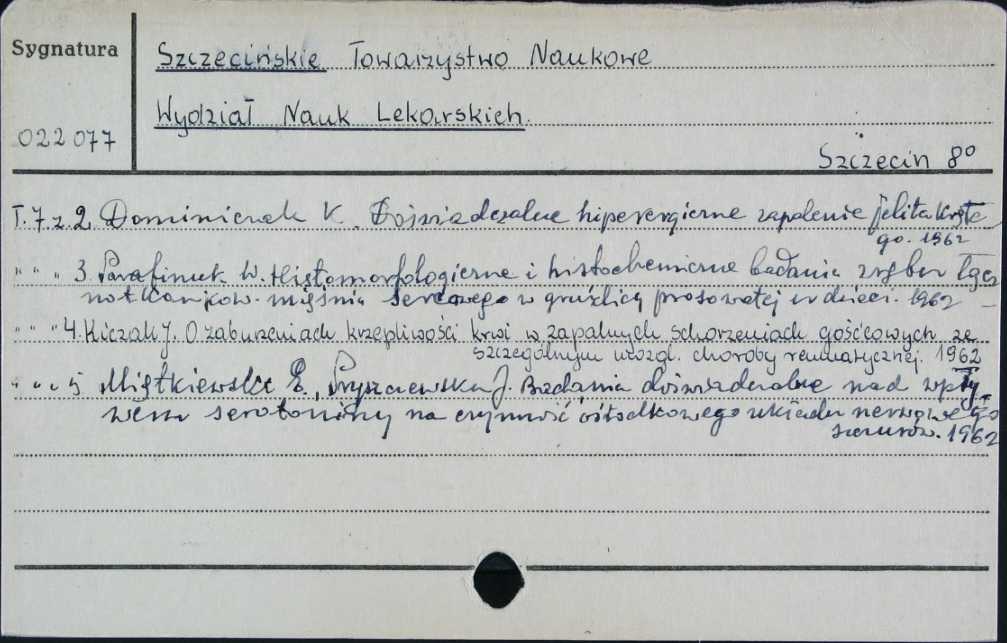 Sygnatura
Szczecińskie Towarzystwo Naukowe
Wydział Nauk Lekarskich
022077
Szczecin 8°
T. 7. z 2. Dominiczak K. Doświadczalne hiperergiczne zapalenie jelita kręte
go. 1962
" " " 3. Parafiniuk W. Histomorfologiczne i histochemiczne badania zrębu łącz
notkankow. mięśnia sercowego w gruźlicy prosowatej u dzieci. 1962
" " " 4. Kiczak J. O zaburzeniach krzepliwości krwi w zapalnych schorzeniach gośćcowych ze
szczególnym uwzgl. choroby reumatycznej. 1962
" " " 5 Miętkiewski E., Pryszczewska J. Badania doświadczalne nad wpły
wem serotoniny na czynność ośrodkowego układu nerwowego
szczurów. 1962